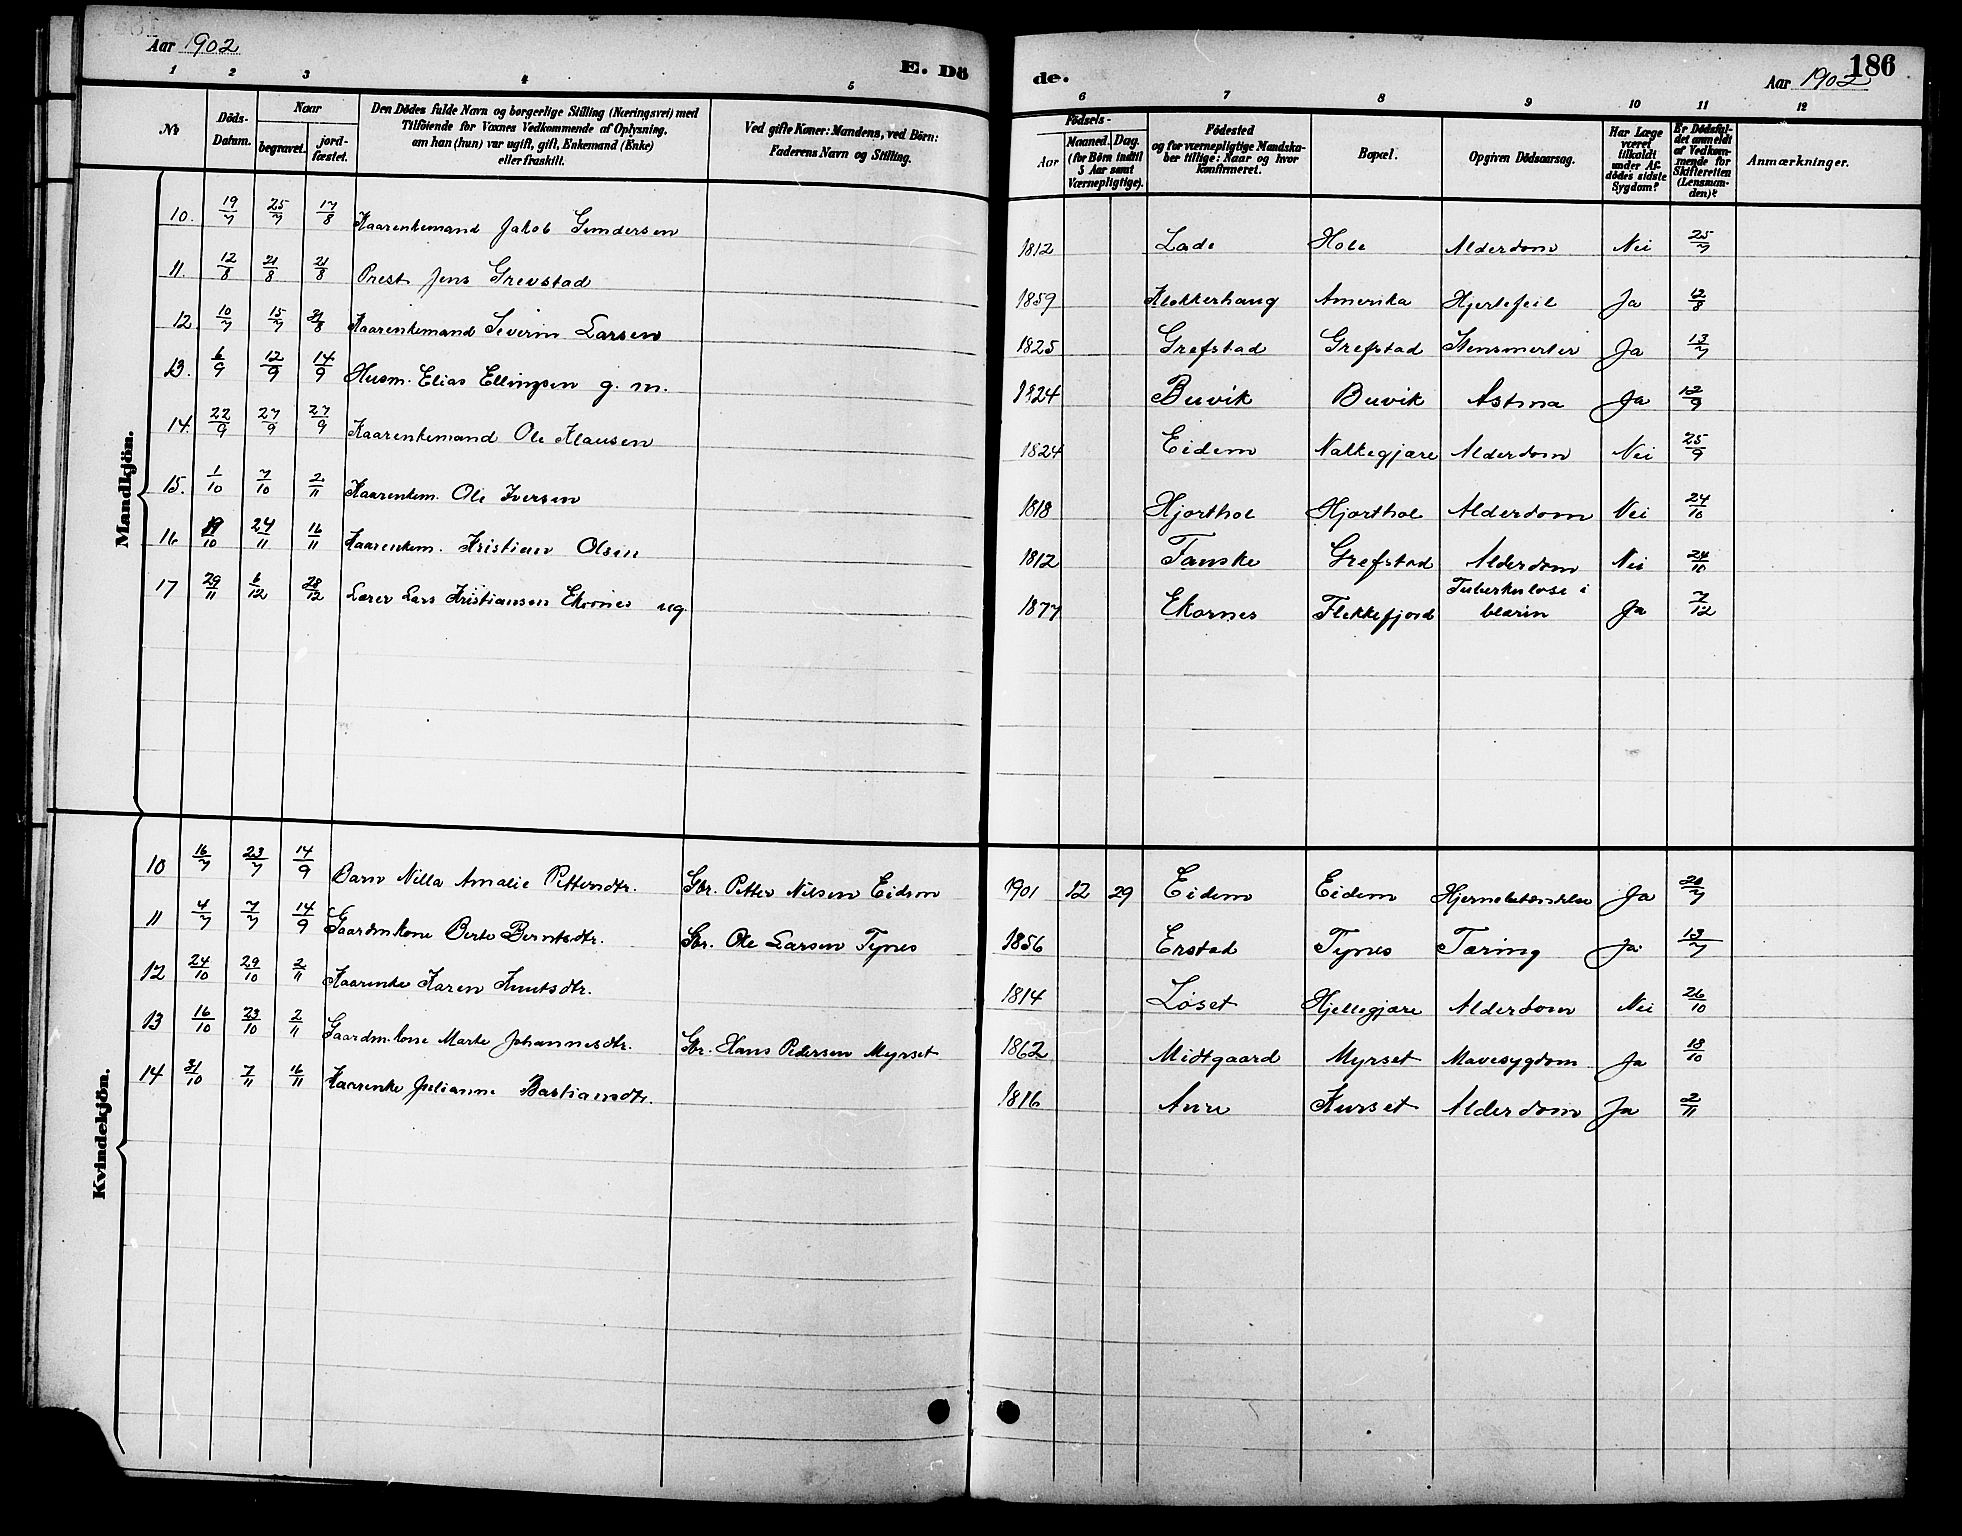 Aar 1902
E. Dö
de.
Aar 1902
186
1 2 3 4 5
6 7 8 9 10 11 12
No
Döds-
Datum.
Naar
begravet.
jord-
fæstet.
Den Dödes fulde Navn og borgerlige Stilling (Næringsvei) med
Tilföiende for Voxnes Vedkommende af Oplysning,
om han (hun) var ugift, gift, Enkemand (Enke)
eller fraskilt.
Ved gifte Koner: Mandens, ved Börn:
Faderens Navn og Stilling.
Födsels-
Aar
Maaned. Dag.
(for Börn indtil
5 Aar samt
Værnepligtige).
Födested
og for værnepligtige Mandska-
ber tillige: Naar og hvor
konfirmeret.
Bopæl.
Opgiven Dödsaarsag.
Har Læge
været
tilkaldt
under Af-
dödes sidste
Sygdom?
Er Dödsfal-
det anmeldt
af Vedkom-
mende for
Skifteretten
(Lensman-
den)?
Anmærkninger.
Mandkjön.
10. 19/7 25/7 17/8 Kaarenkemand Jakob Gundersen 1812 Lade Hole Alderdom Nei 25/7
11. 12/8 21/8 21/8 Prest Jens Grevstad 1859 Klokkerhaug Amerika Hjertefeil Ja 12/8
12 10/7 15/7 31/8 Kaarenkemand Severin Larsen 1825 Grefstad Grefstad Stensmerter Ja 13/7
13. 6/9 12/9 14/9 Husm. Elias Ellingsen g. m. 1824 Buvik Buvik Astma Ja 12/9
14. 22/9 27/9 27/9 Kaarenkemand Ole Klausen 1824 Eidem Nakkegjære Alderdom Nei 25/9
15. 1/10 7/10 2/11 Kaarenkem. Ole Iversen 1818 Hjorthol Hjorthol Alderdom Nei 24/10
16 19/10 24/11 16/11 Kaarenkem. Kristian Olsen 1812 Fauske Grefstad Alderdom Nei 24/10
17 29/11 6/12 28/12 Lærer Lars Kristiansen Ekornes ug. 1877 Ekornes Flekkefjord Tuberkulose i
blærin Ja 7/12
Kvindekjön.
10 16/7 23/7 14/9 Barn Nilla Amalie Pettersdtr. Gbr. Petter Nilsen Eidem 1901 12 29 Eidem Eidem Hjernebetændelse Ja 20/7
11 4/7 7/7 14/9 Gaardmkone Berte Berntsdtr. Gbr. Ole Larsen Tynes 1856 Erstad Tynes Tæring Ja 13/7
12 24/10 29/10 2/11 Kaarenke Karen Knutsdtr. 1814 Løset Hjellegjære Alderdom Nei 26/10
13 16/10 23/10 2/11 Gaardm.kone Marte Johannesdtr. Gbr. Hans Pedersen Myrset 1862 Midtgaard Myrset Mavesygdom Ja 18/10
14 31/10 7/11 16/11 Kaarenke Julianne Bastiansdtr. 1816 Aure Kurset Alderdom Ja 2/11